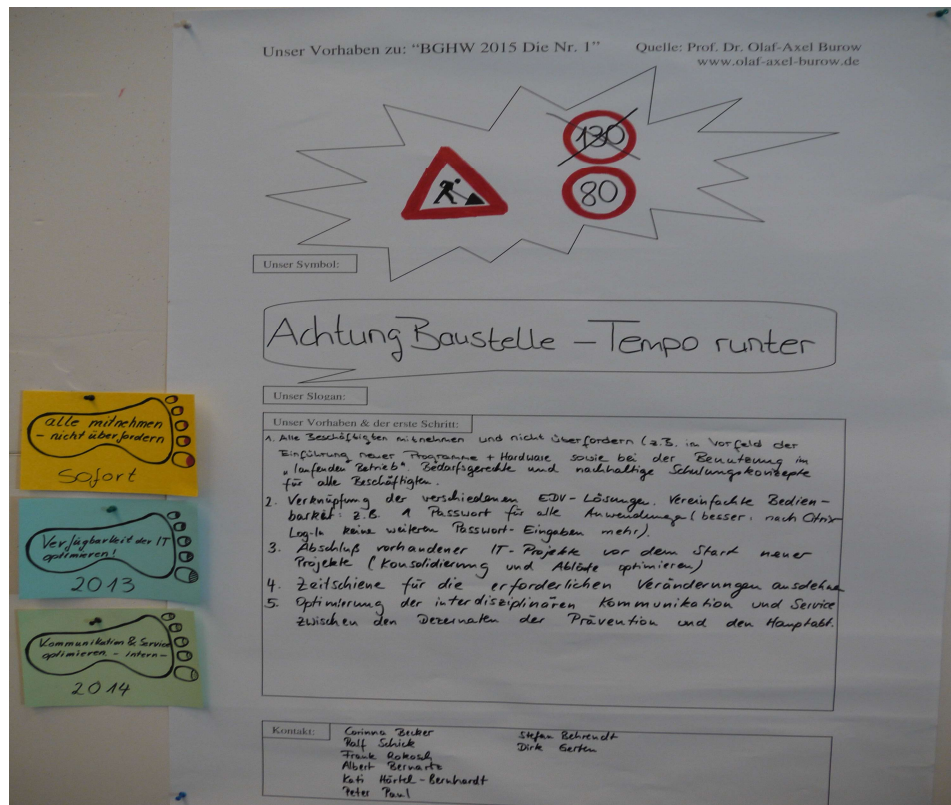 Unser Vorhaben zu: “BGHW 2015 Die Nr. 1”
Quelle: Prof. Dr. Olaf-Axel Burow
www.olaf-axel-burow.de
130
80
Unser Symbol:
Achtung Baustelle – Tempo runter
Unser Slogan:
Unser Vorhaben & der erste Schritt:
1. Alle Beschäftigten mitnehmen und nicht überfordern (z.B. im Vorfeld der
Einführung neuer Programme + Hardware sowie bei der Benutzung im
„laufenden Betrieb“. Bedarfsgerechte und nachhaltige Schulungskonzepte
für alle Beschäftigten.
2. Verknüpfung der verschiedenen EDV-Lösungen. Vereinfachte Bedien-
barkeit: z.B. 1 Passwort für alle Anwendungen (besser: nach
Log-In keine weiteren Passwort-Eingaben mehr).
3. Abschluß vorhandener IT-Projekte vor dem Start neuer
Projekte (Konsolidierung und Abläufe optimieren)
4. Zeitschiene für die erforderlichen Veränderungen ausdehnen
5. Optimierung der interdisziplinären Kommunikation und Service
zwischen den Dezernaten der Prävention und den Hauptabt.
alle mitnehmen
- nicht überfordern
sofort
Verfügbarkeit der IT
optimieren!
2013
Kommunikation & Service
optimieren - intern -
2014
Kontakt:
Corinna Becker
Ralf Schick
Frank Rokosch
Albert Bernartz
Kati Härtel-Bernhardt
Peter Paul
Stefan Behrendt
Dirk Gerten